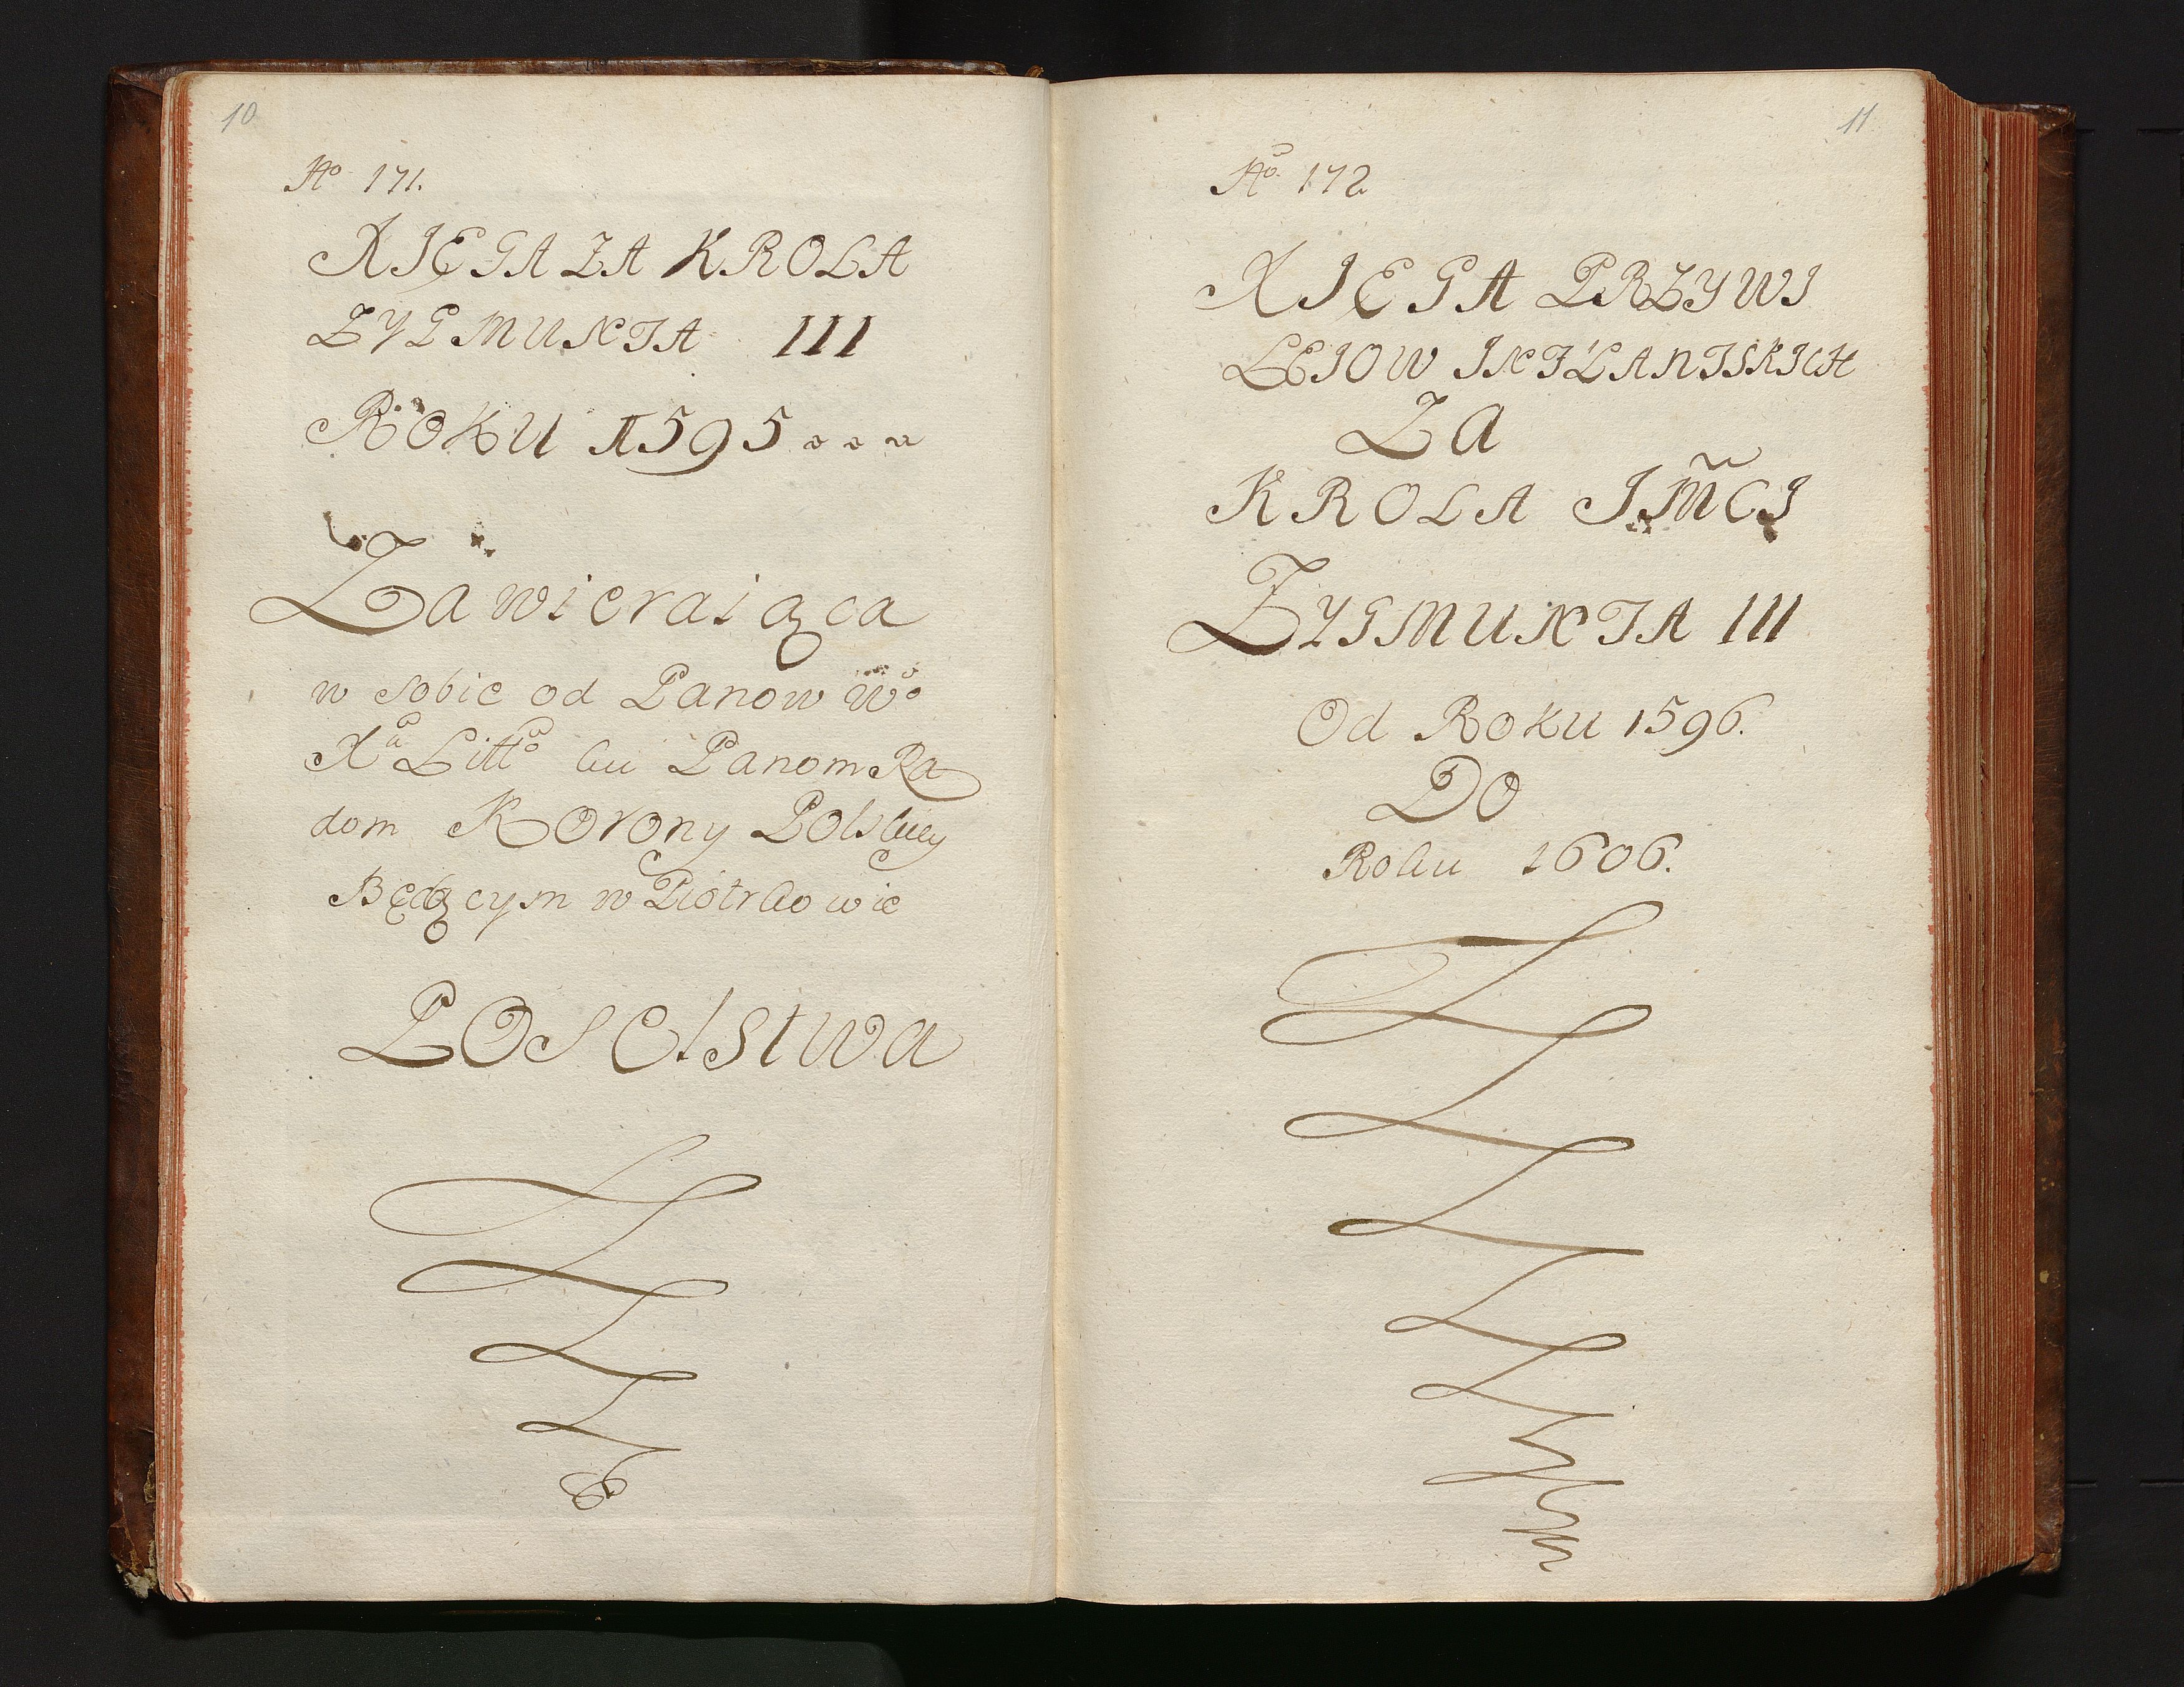 10
No 171.
XIĘGA ZA KROLA
ZYGMUNTA III
ROKU 1595
Zawieraiąca
w sobie od Panow Wo
Xa Litto ku Panom Ra
dom Korony Polskiey
Będącym w Piotrkowie
Poselstwa
11
No. 172
XIĘGA PRZYWI
LEIOW INFLANTSKICH
ZA
KROLA JMCI
ZYGMUNTA III
Od Roku 1596.
DO
Roku 1606.